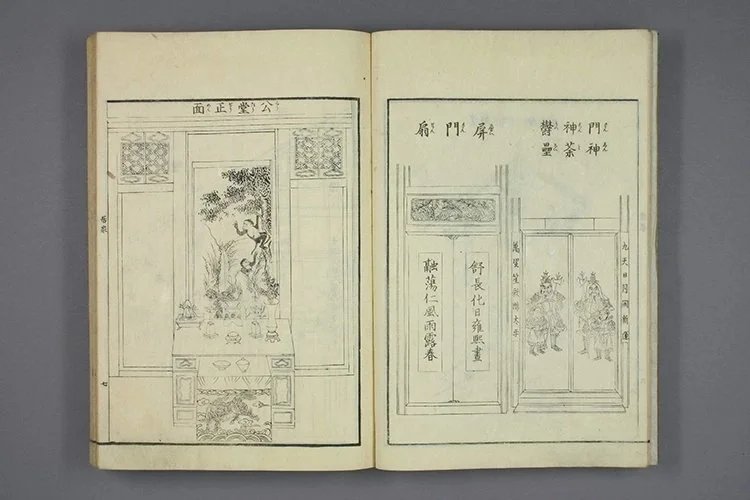 門神
神荼
鬱壘
九天日月開新運
萬里笙歌樂太平
屏門扇
舒長化日雍熙晝
融蕩仁風雨露春
公堂正面
居家
七